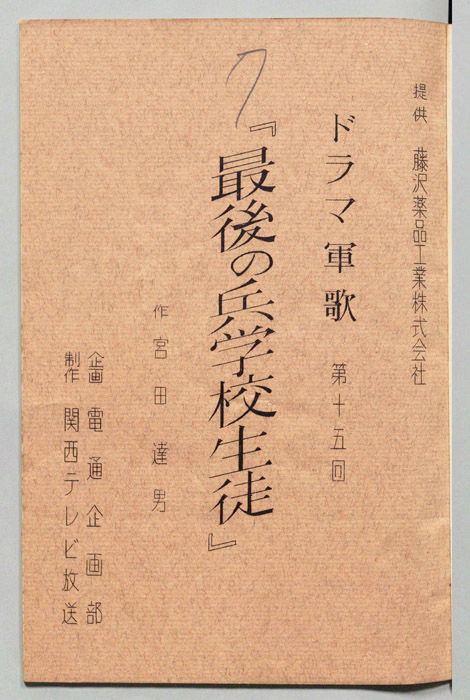 提供 藤沢薬品工業株式会社
ドラマ軍歌 第十五回
『最後の兵学校生徒』
作 宮田達男
企画 電通企画部
制作 関西テレビ放送